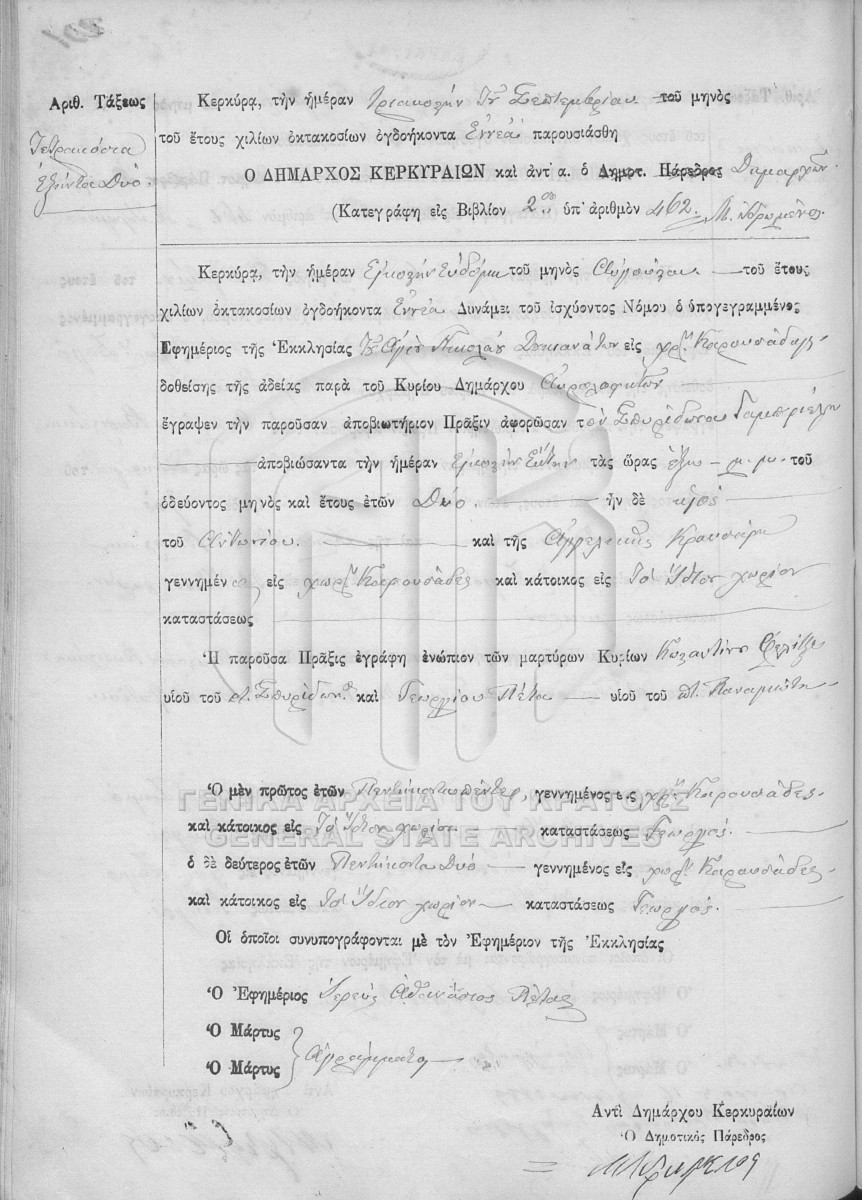 Ἀριθ. Τάξεως
Τετρακόσια
ἑξήντα Δυό.
Κερκύρᾳ, τὴν ἡμέραν Τριακοστήν Σεπτεμβρίου τοῦ μηνὸς
τοῦ ἔτους χιλίων ὀκτακοσίων ὀγδοήκοντα Ἐννέα παρουσιάσθη
Ὁ ΔΗΜΑΡΧΟΣ ΚΕΡΚΥΡΑΙΩΝ καὶ ἀντ' α. ὁ Δημοτ. Πάρεδρος
(Κατεγράφη εἰς Βιβλίον 2ον ὑπ' ἀριθμὸν 462.
Κερκύρᾳ, τὴν ἡμέραν Εἰκοστήν Ἑβδόμη τοῦ μηνὸς Αὐγούστου τοῦ ἔτους
χιλίων ὀκτακοσίων ὀγδοήκοντα Ἐννέα Δυνάμει τοῦ ἰσχύοντος Νόμου ὁ ὑπογεγραμμένος
Ἐφημέριος τῆς Ἐκκλησίας Τοῦ Ἁγίου Νικολάου εἰς χωρ. Καρουσάδες
δοθείσης τῆς ἀδείας παρὰ τοῦ Κυρίου Δημάρχου
ἔγραψεν τὴν παροῦσαν ἀποβιωτήριον Πρᾶξιν ἀφορῶσαν τόν Σπυρίδωνα
ἀποβιώσαντα τὴν ἡμέραν Εἰκοστήν Ἕκτην τὰς ὥρας ἕξω μ. μ. τοῦ
ὁδεύοντος μηνὸς καὶ ἔτους ἐτῶν Δύο ἦν δὲ υἱός
τοῦ Ἀντωνίου. καὶ τῆς Ἀγγελικῆς
γεννημέν εἰς χωρ. Καρουσάδες καὶ κάτοικος εἰς Τό Ἴδιον χωρίον
καταστάσεως
Ἡ παροῦσα Πρᾶξις ἐγράφη ἐνώπιον τῶν μαρτύρων Κυρίων
υἱοῦ τοῦ π. Σπυρίδωνος καὶ Γεωργίου Πέτα υἱοῦ τοῦ π. Παναγιώτη
Ὁ μὲν πρῶτος ἐτῶν Πεντήκοντα πέντε, γεννημένος εἰς χωρ. Καρουσάδες
καὶ κάτοικος εἰς Τό Ἴδιον χωρίον καταστάσεως Γεωργός.
ὁ δὲ δεύτερος ἐτῶν Πεντήκοντα Δυό γεννημένος εἰς χωρ. Καρουσάδες
καὶ κάτοικος εἰς Τό Ἴδιον χωρίον καταστάσεως Γεωργός.
Οἱ ὁποῖοι συνυπογράφονται μὲ τὸν Ἐφημέριον τῆς Ἐκκλησίας
Ὁ Ἐφημέριος Ἱερεύς Ἀθανάσιος Πέτας
Ὁ Μάρτυς
Ὁ Μάρτυς Ἀγράμματοι
Ἀντὶ Δημάρχου Κερκυραίων
Ὁ Δημοτικὸς Πάρεδρος
ΓΕΝΙΚΑ ΑΡΧΕΙΑ ΤΟΥ ΚΡΑΤΟΥΣ
GENERAL STATE ARCHIVES